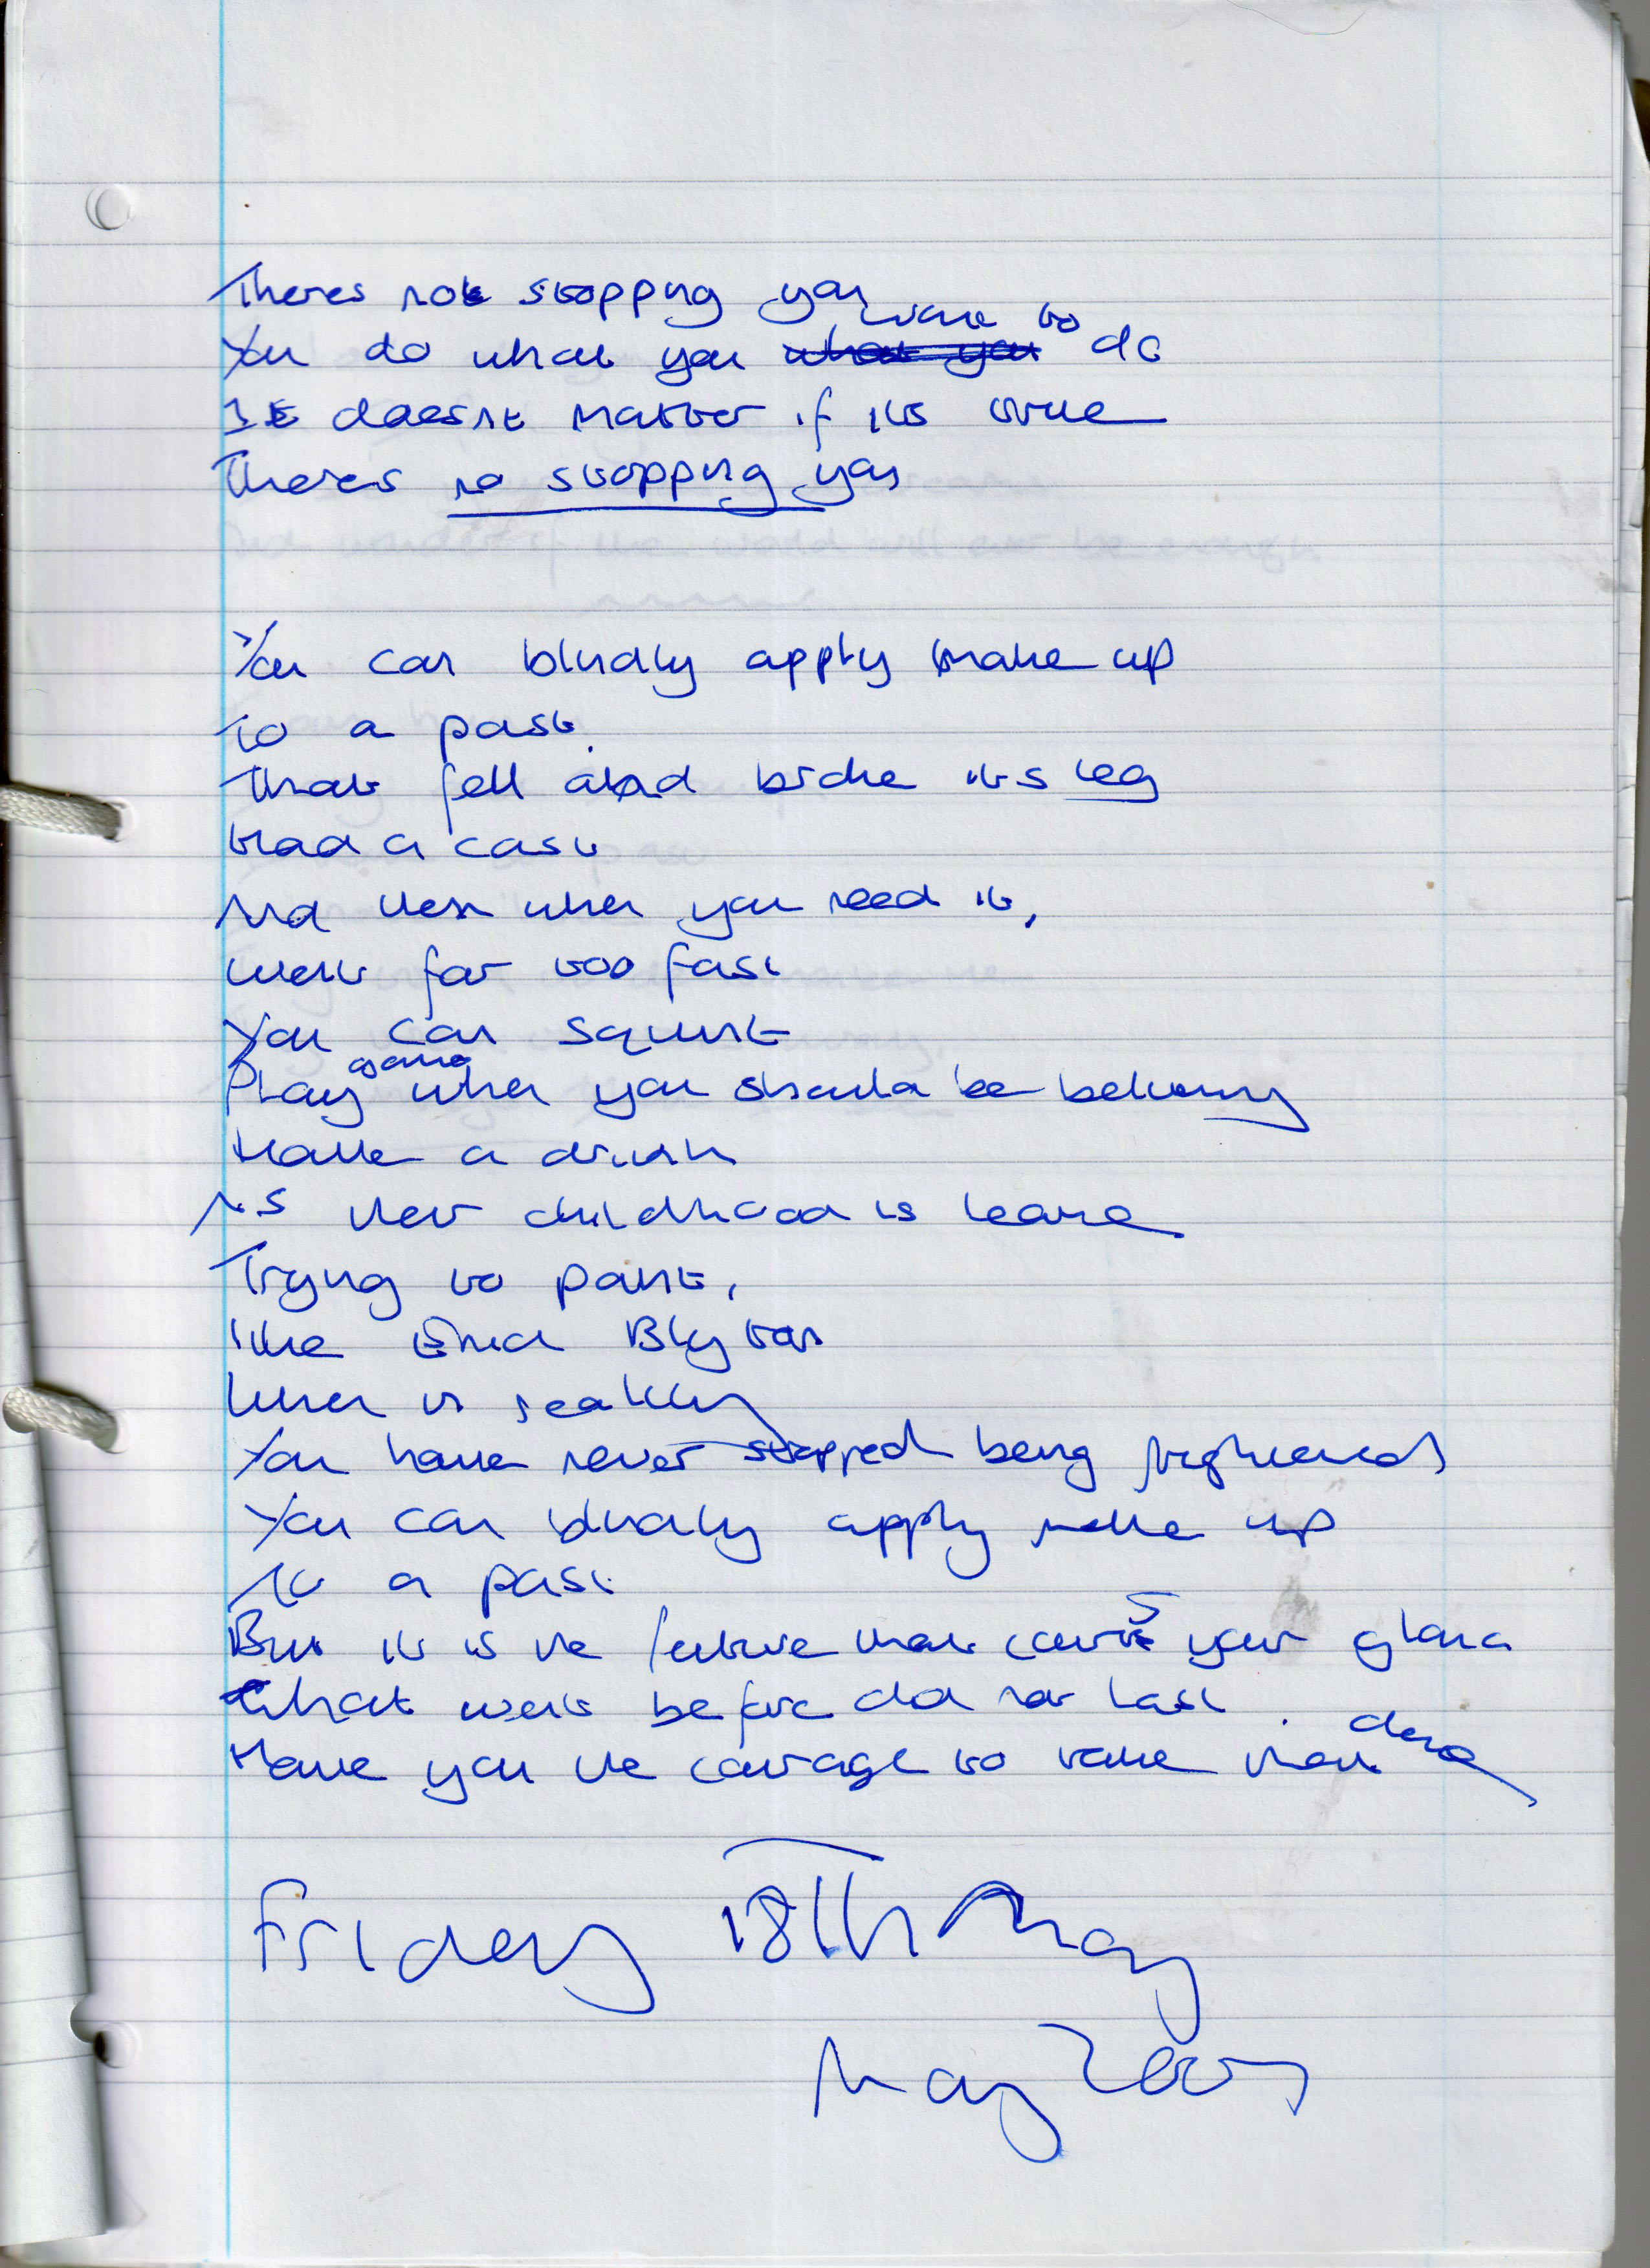 Theres not stopping you
You do what you ~~what you~~ want to do
It doesnt matter if its true
Theres no stopping you
You can blindly apply make up
to a past.
That fell and broke its leg
Had a cast
And then when you need it,
went far too fast
You can squint
Play game when you should be
Have a drink
As their childhood is
Trying to paint,
like Enid Blyton
When in reality
You have never stopped being frightened
You can blindly apply make up
To a past
But it is the future that your
What went before did not last.
Have you the courage to take that
Friday 18Th May
May 2007